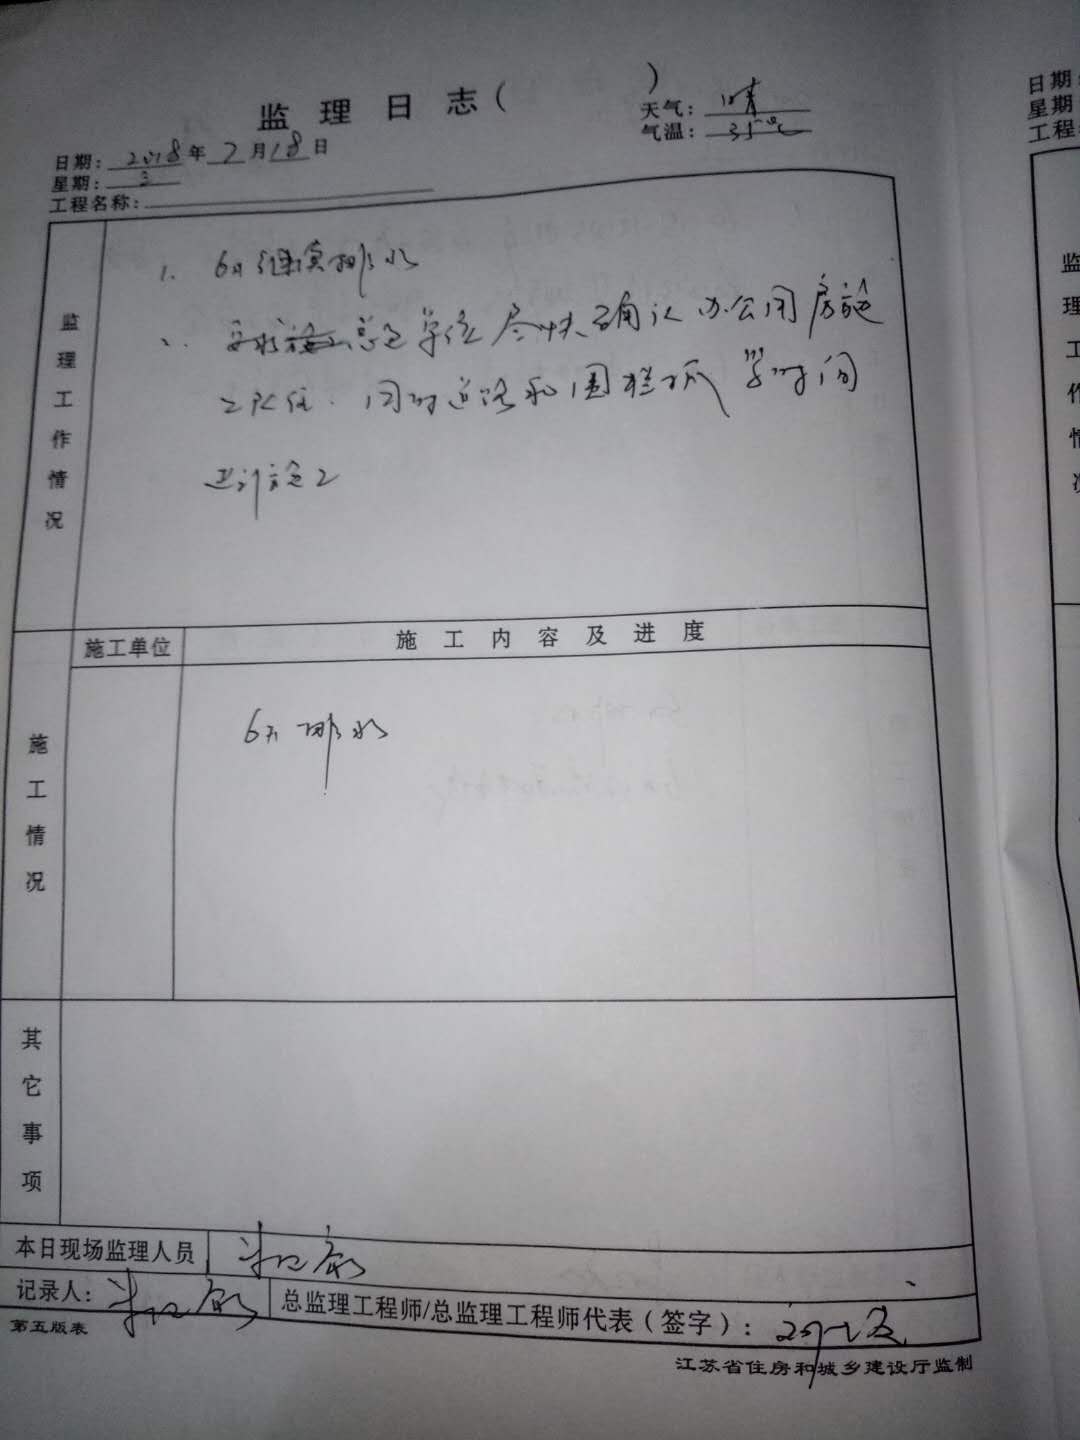 监理日志( )
天气: 晴
气温: 35℃
日期: 2018年7月18日
星期: 3
工程名称:
监理工作情况
1. 6#继续排水
2. 要求总包单位尽快确认办公用房施
工队伍. 同时道路和围栏抓紧时间
进行施工
施工单位
施工内容及进度
施工情况
6# 排水
其它事项
本日现场监理人员
记录人:
总监理工程师/总监理工程师代表(签字):
第五版表
江苏省住房和城乡建设厅监制
日期:
星期
工程
监理工作情况